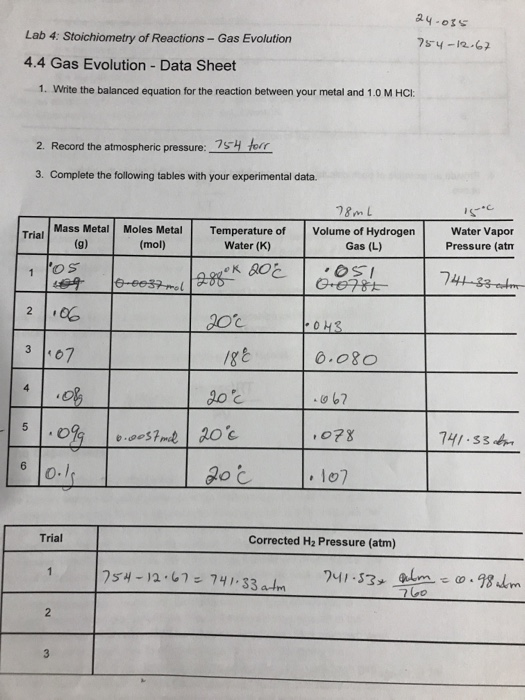 24.035
Lab 4: Stoichiometry of Reactions – Gas Evolution
754-12.67
4.4 Gas Evolution - Data Sheet
1. Write the balanced equation for the reaction between your metal and 1.0 M HCl:
2. Record the atmospheric pressure: 754 torr
3. Complete the following tables with your experimental data.
78mL 15°C
Trial Mass Metal (g) Moles Metal (mol) Temperature of Water (K) Volume of Hydrogen Gas (L) Water Vapor Pressure (atm
1 .05 0.0037 mol 288°K 20°C .051 0.078L 741.33 atm
2 .06 20°C .043
3 .07 18°C 0.080
4 .08g 20°C .067
5 .09g 0.0037 mol 20°C .078 741.33 atm
6 0.1g 20°C .107
Trial Corrected H₂ Pressure (atm)
1 754-12.67 = 741.33 atm 741.33x atm/760 = 0.98 atm
2
3